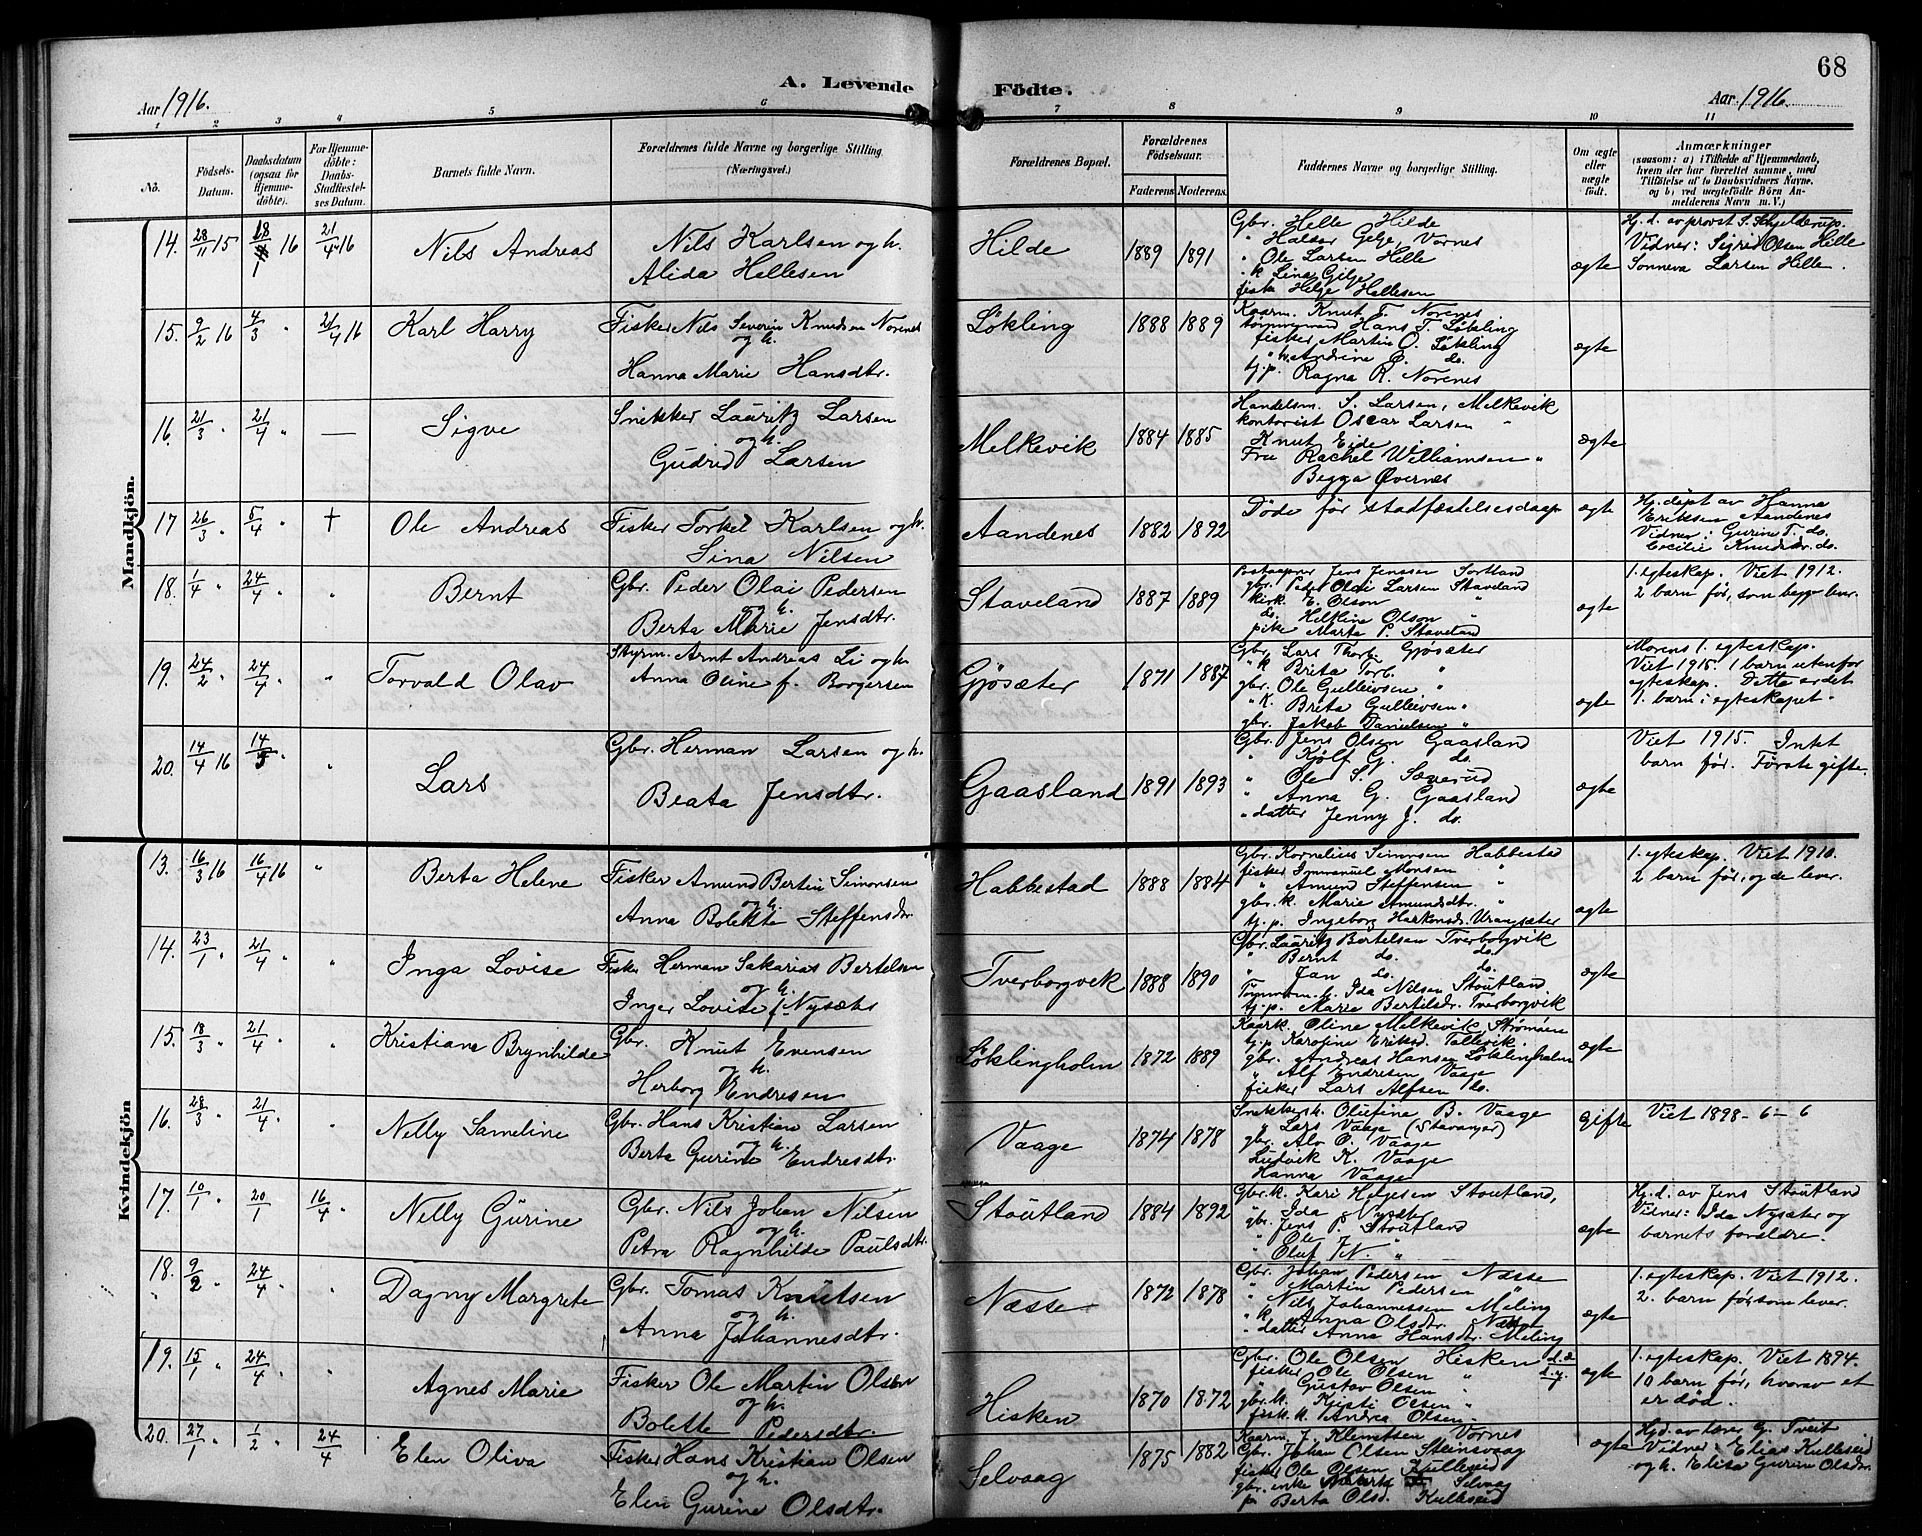 68
A. Levende Födte.
Aar 1916.
Aar 1916.
1 2 3 4 5 6 7 8 9 10 11
No.
Födsels-Datum.
Daabsdatum (ogsaa for Hjemmedöbte).
For Hjemmedöbte: Daabs-Stadfæstelses Datum.
Barnets fulde Navn.
Forældrenes fulde Navne og borgerlige Stilling. (Næringsvei.)
Forældrenes Bopæl.
Forældrenes Födselsaar.
Faderens. Moderens.
Faddernes Navne og borgerlige Stilling.
Om ægte eller uægte födt.
Anmærkninger
(saasom: a) i Tilfælde af Hjemmedaab, hvem der har forrettet samme, med Tilföielse af to Daabsvidners Navne, og b) ved uægtefödte Börn Anmelderens Navn m. V.)
Mandkjön.
14. 28/11 15 16 21/4 16 Nils Andreas
Nils Karlsen og h.
Alida Hellesen
Hilde 1889 1891
Gbr. Helle Hilde
" Haldor Gilje, Vornes
" Ole Larsen Hille
" k Lina Gilje
fisk. Helge Hellesen
ægte
Hj. d. av provst S. Schjelderup.
Vidner: Sigrid Olsen Hille
Sonneva Larsen Hille.
15. 9/2 16 4/3 " 21/4 16 Karl Harry
Fisker Nils Severin Knudsen Norenes
og h.
Hanna Marie Hansdtr.
Lökling 1888 1889
Kaarm. Knut T. Norenes
tømmermand Hans T. Lökling
fisker Martin O. Lökling
" h. Andrine Ø. do.
tj. p. Ragna R. Norenes
ægte
16. 21/3 " 21/4 " — Sigve
Snikker Lauritz Larsen
og h.
Gudrid Larsen
Melkevik 1884 1885
Handelsm. S. Larsen, Melkevik
kontorist Oscar Larsen "
Knut Eide
Fru Rachel Williamsen "
Begga Øvernes
ægte
17 26/3 " 5/4 " † Ole Andreas
Fisker Torkel Karlsen og h.
Lina Nilsen
Aandenes 1882 1892
Döde för stadfæstelsesdaap
ægte
Hj. döpt av Hanna
Eriksen Aandenes
Vidner: Gurine T. do.
Cecilie Knudsdr. do.
18. 1/4 " 24/4 " " Bernt
Gbr. Peder Olai Pedersen
og h.
Berta Marie Jensdtr.
Staveland 1887 1889
Postaapner Jens Jenssen Sortland
gbr. Peder Olai Larsen Staveland
kirk. E. Olson "
do. Helkine Olson "
pike Marta P. Staveland
ægte
1. egteskap. Viet 1912.
2 barn før, som begge lever.
19. 24/2 " 24/4 " " Torvald Olav
Styrm. Arnt Andreas Li og h.
Anna Oline f. Borgersen
Gjøsæter 1871 1887
Gbr. Lars Thorb. Gjøsæter
" k Brita Torb. "
gbr. Ole Gulleivsen "
" k. Brita Gulleivsen "
gbr. Jakob Danielsen "
ægte
Morens 1. egteskap.
Viet 1915. 1 barn utenfor
egteskap. Dette er det
1. barn i egteskapet.
20. 14/4 16 14/5 " Lars
Gbr. Herman Larsen og h.
Beata Jensdtr.
Gaasland 1891 1893
Gbr. Jens Olsen Gaasland
" Kjölf G. do.
" Ole S. Sæverud
" Anna G. Gaasland
" datter Jenny J. do.
ægte
Viet 1915. Intet
barn før. Første gifte.
Kvindekjön
13. 16/3 16 16/4 16 " Berta Helene
Fisker Amund Bertin Simonsen
og h.
Anna Bolette Steffensdr.
Habbestad 1888 1884
Gbr. Kornelius Simonsen Habbestad
fisker Immanuel Monsen "
" Amund Steffensen "
gbr. k. Marie Amundsdtr. "
tj. p. Ingeborg Haakonsdr. Urangsæter
ægte
1. egteskap. Viet 1910.
2 barn før, og de lever.
14. 23/1 " 21/4 " " Inga Lovise
Fisker Herman Sakarias Bertelsen
og h.
Inger Lovise f. Nysæter
Tverborgvik 1888 1890
Gbr. Lauritz Bertelsen Tverborgvik
" Bernt do. do.
" Jan do. do.
Tømmerm. h. Ida Nilsen Stoutland
tj. p. Marie Bertelsdr. Tverborgvik
ægte
15. 18/3 " 21/4 " " Kristiane Brynhilde
Gbr. Knut Evensen
og h.
Herborg Endresen
Löklingholm 1872 1889
Kaark. Oline Melkevik, Strømøen
tj. p. Karoline Eriksd. Tallevik.
gbr. Andreas Hansen Löklingholm
" Alf Endresen Vaage
fisker Lars Alfsen do.
ægte
16. 28/3 " 21/4 " " Nelly Sameline
Gbr. Hans Kristian Larsen
og h.
Berta Gurine Endresdtr.
Vaage 1874 1878
Snekker k. Olufine B. Vaage
" Lars Vaage (Stavanger)
gbr. Alv O. Vaage
Ludvik K. Vaage
Hanna Vaage
gifte
Viet 1898 - 6 - 6
17. 10/1 " 20/1 16/4 " Nelly Gurine
Gbr. Nils Johan Nilsen
og h.
Petra Ragnhilde Paulsdtr.
Stoutland 1884 1892
Gbr. k. Kari Helgesen Stoutland,
" Ida Nysæter
gbr. Jens P. Stoutland
" Ole "
" Oluf J. N. "
ægte
Hj. d. av Jens Stoutland
Vidner: Ida Nysæter og
barnets forældre.
18. 9/2 24/4 " " Dagny Margrete
Gbr. Tomas Knutsen
og h.
Anna Johannesdtr.
Næsse 1872 1878
Gbr. Johan Pedersen Næsse
" Martin Pedersen "
" Nils Johannessen Meling
" k. Anna Olsdtr. Næsse
" datter Anna Hansdtr. Meling
ægte
1. egteskap. Viet 1912.
2. barn før, som lever.
19. 15/1 " 24/4 " Agnes Marie
Fisker Ole Martin Olsen
og h.
Bolette Pedersdtr.
Hisken 1870 1872
Gbr. Ole Olsen Hisken d. æ.
fisker Ole Olsen " d. y.
" Gustav Olsen
gbr. k. Kjersti Olsen "
fisk. k. Andrea Olsen "
ægte
1. egteskap. Viet 1894.
10 barn før, hvorav et
er død.
20. 27/1 1/2 " 24/4 Elen Oliva
Fisker Hans Kristian Olsen
og h.
Elen Gurine Olsdtr.
Selvaag 1875 1882
Kaarm. J. Klemetsen Vornes
Gbr. Johan Olsen Steinsvaag
fisker Ole Olsen Kulleseid
gbr. enke Selvaag
p. Berta Olsd. Kulleseid
ægte
Hjd. av lærer G. Tveit
Vidner: Elias Kulleseid
og h. Elisa Gurine Olsdr.